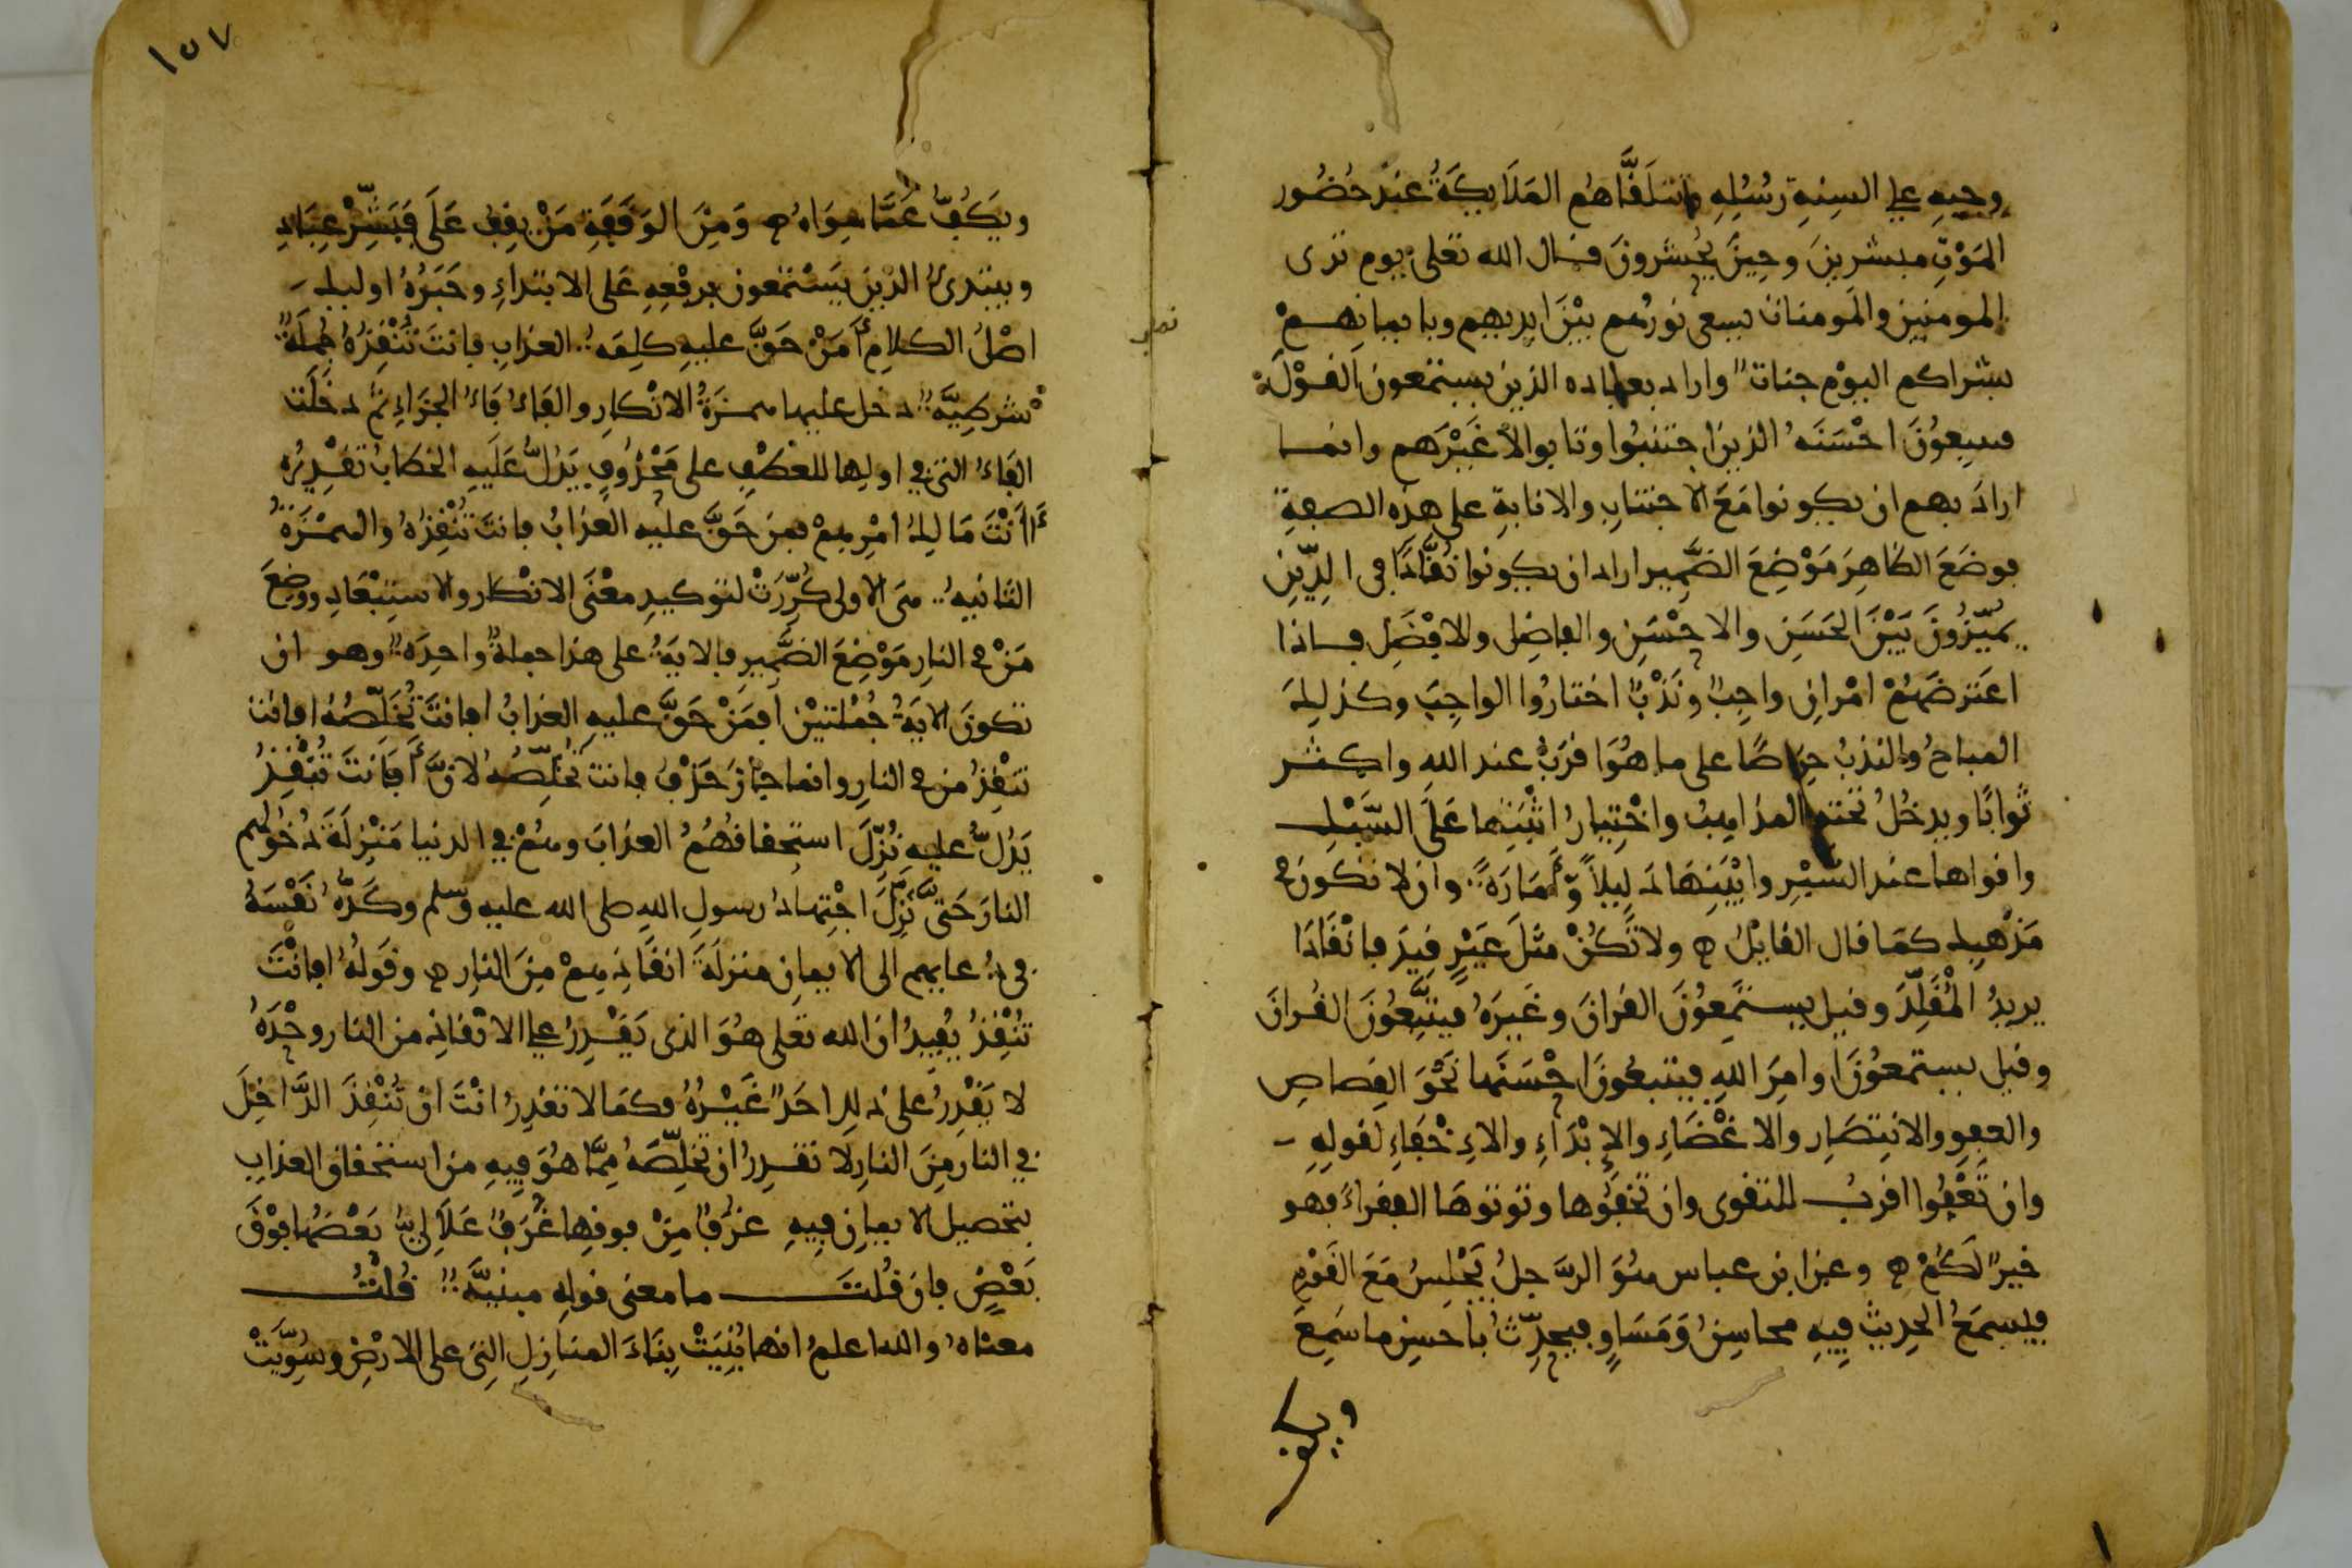 وحيه على السنة رسله وتتلقاهم الملايكة عند حضور
الموت مبشرين وحين يحشرون قال الله تعلى يوم ترى
المومنين والمومنات يسعى نورهم بين ايديهم وبايمانهم
بشراكم اليوم جنات واراد بعباده الذين يستمعون القول
فيتبعون احسنه الذين اجتنبوا وتابوا لا غيرهم وانما
اراد بهم ان يكونوا مع الاجتناب والانابة على هذه الصفة
فوضع الظاهر موضع الضمير اراد ان يكونوا نقادا في الدين
يميزون بين الحسن والاحسن والفاضل والافضل فاذا
اعترضهم امران واجب وندب اختاروا الواجب وكذلك
المباح والندب حراصا على ما هو اقرب عند الله واكثر
ثوابا ويدخل تحته المذاهب واختيار اثبتها على السبك
واقواها عند السبر وابينها دليلا وامارة وان لا تكون في
مذهبك كما قال القايل ولا تكن مثل عير قيد فانقادا
يريد المقلد وقيل يستمعون القران وغيره فيتبعون القران
وقيل يستمعون اوامر الله فيتبعون احسنها نحو القصاص
والعفو والانتصار والاغضاء والابداء والاخفاء لقوله
وان تعفوا اقرب للتقوى وان تخفوها وتوتوها الفقراء فهو
خير لكم وعن ابن عباس هو الرجل يجلس مع القوم
فيسمع الحديث فيه محاسن ومساو فيحدث باحسن ما سمع
ويكف
١٥٧
ويكف عما سواه ومن الوقفة من يقف على فبشر عباد
ويبتدئ الذين يستمعون برفعه على الابتداء وخبره اوليك
اصل الكلام امن حق عليه كلمة العذاب فانت تنقذه جملة
شرطية دخل عليها همزة الانكار والفاء فاء الجزاء ثم دخلت
الفاء التي في اولها للعطف على محذوف يدل عليه الخطاب تقديره
أانت مالك امرهم فمن حق عليه العذاب فانت تنقذه والهمزة
الثانية هي الاولى كررت لتوكيد معنى الانكار والاستبعاد ووضع
من في النار موضع الضمير فالاية على هذا جملة واحدة وهو ان
تكون الاية جملتين افمن حق عليه العذاب افانت تخلصه افانت
تنقذ من في النار وانما جاز حذف فانت تخلصه لان افانت تنقذ
يدل عليه نزل استحقاقهم العذاب وهم في الدنيا منزلة دخولهم
النار حتى نزل اجتهاد رسول الله صلى الله عليه وسلم وكده نفسه
في دعايهم الى الايمان منزلة انقاذهم من النار وقوله افانت
تنقذ يفيد ان الله تعلى هو الذي يقدر على الانقاذ من النار وحده
لا يقدر على ذلك احد غيره فكما لا تقدر انت ان تنقذ الداخل
في النار من النار لا تقدر ان تخلصه مما هو فيه من استحقاق العذاب
بتحصيل الايمان فيه غرف من فوقها غرف علالي بعضها فوق
بعض فان قلت ما معنى قوله مبنية قلت
معناه والله اعلم انها بنيت بناء المنازل التي على الارض وسويت